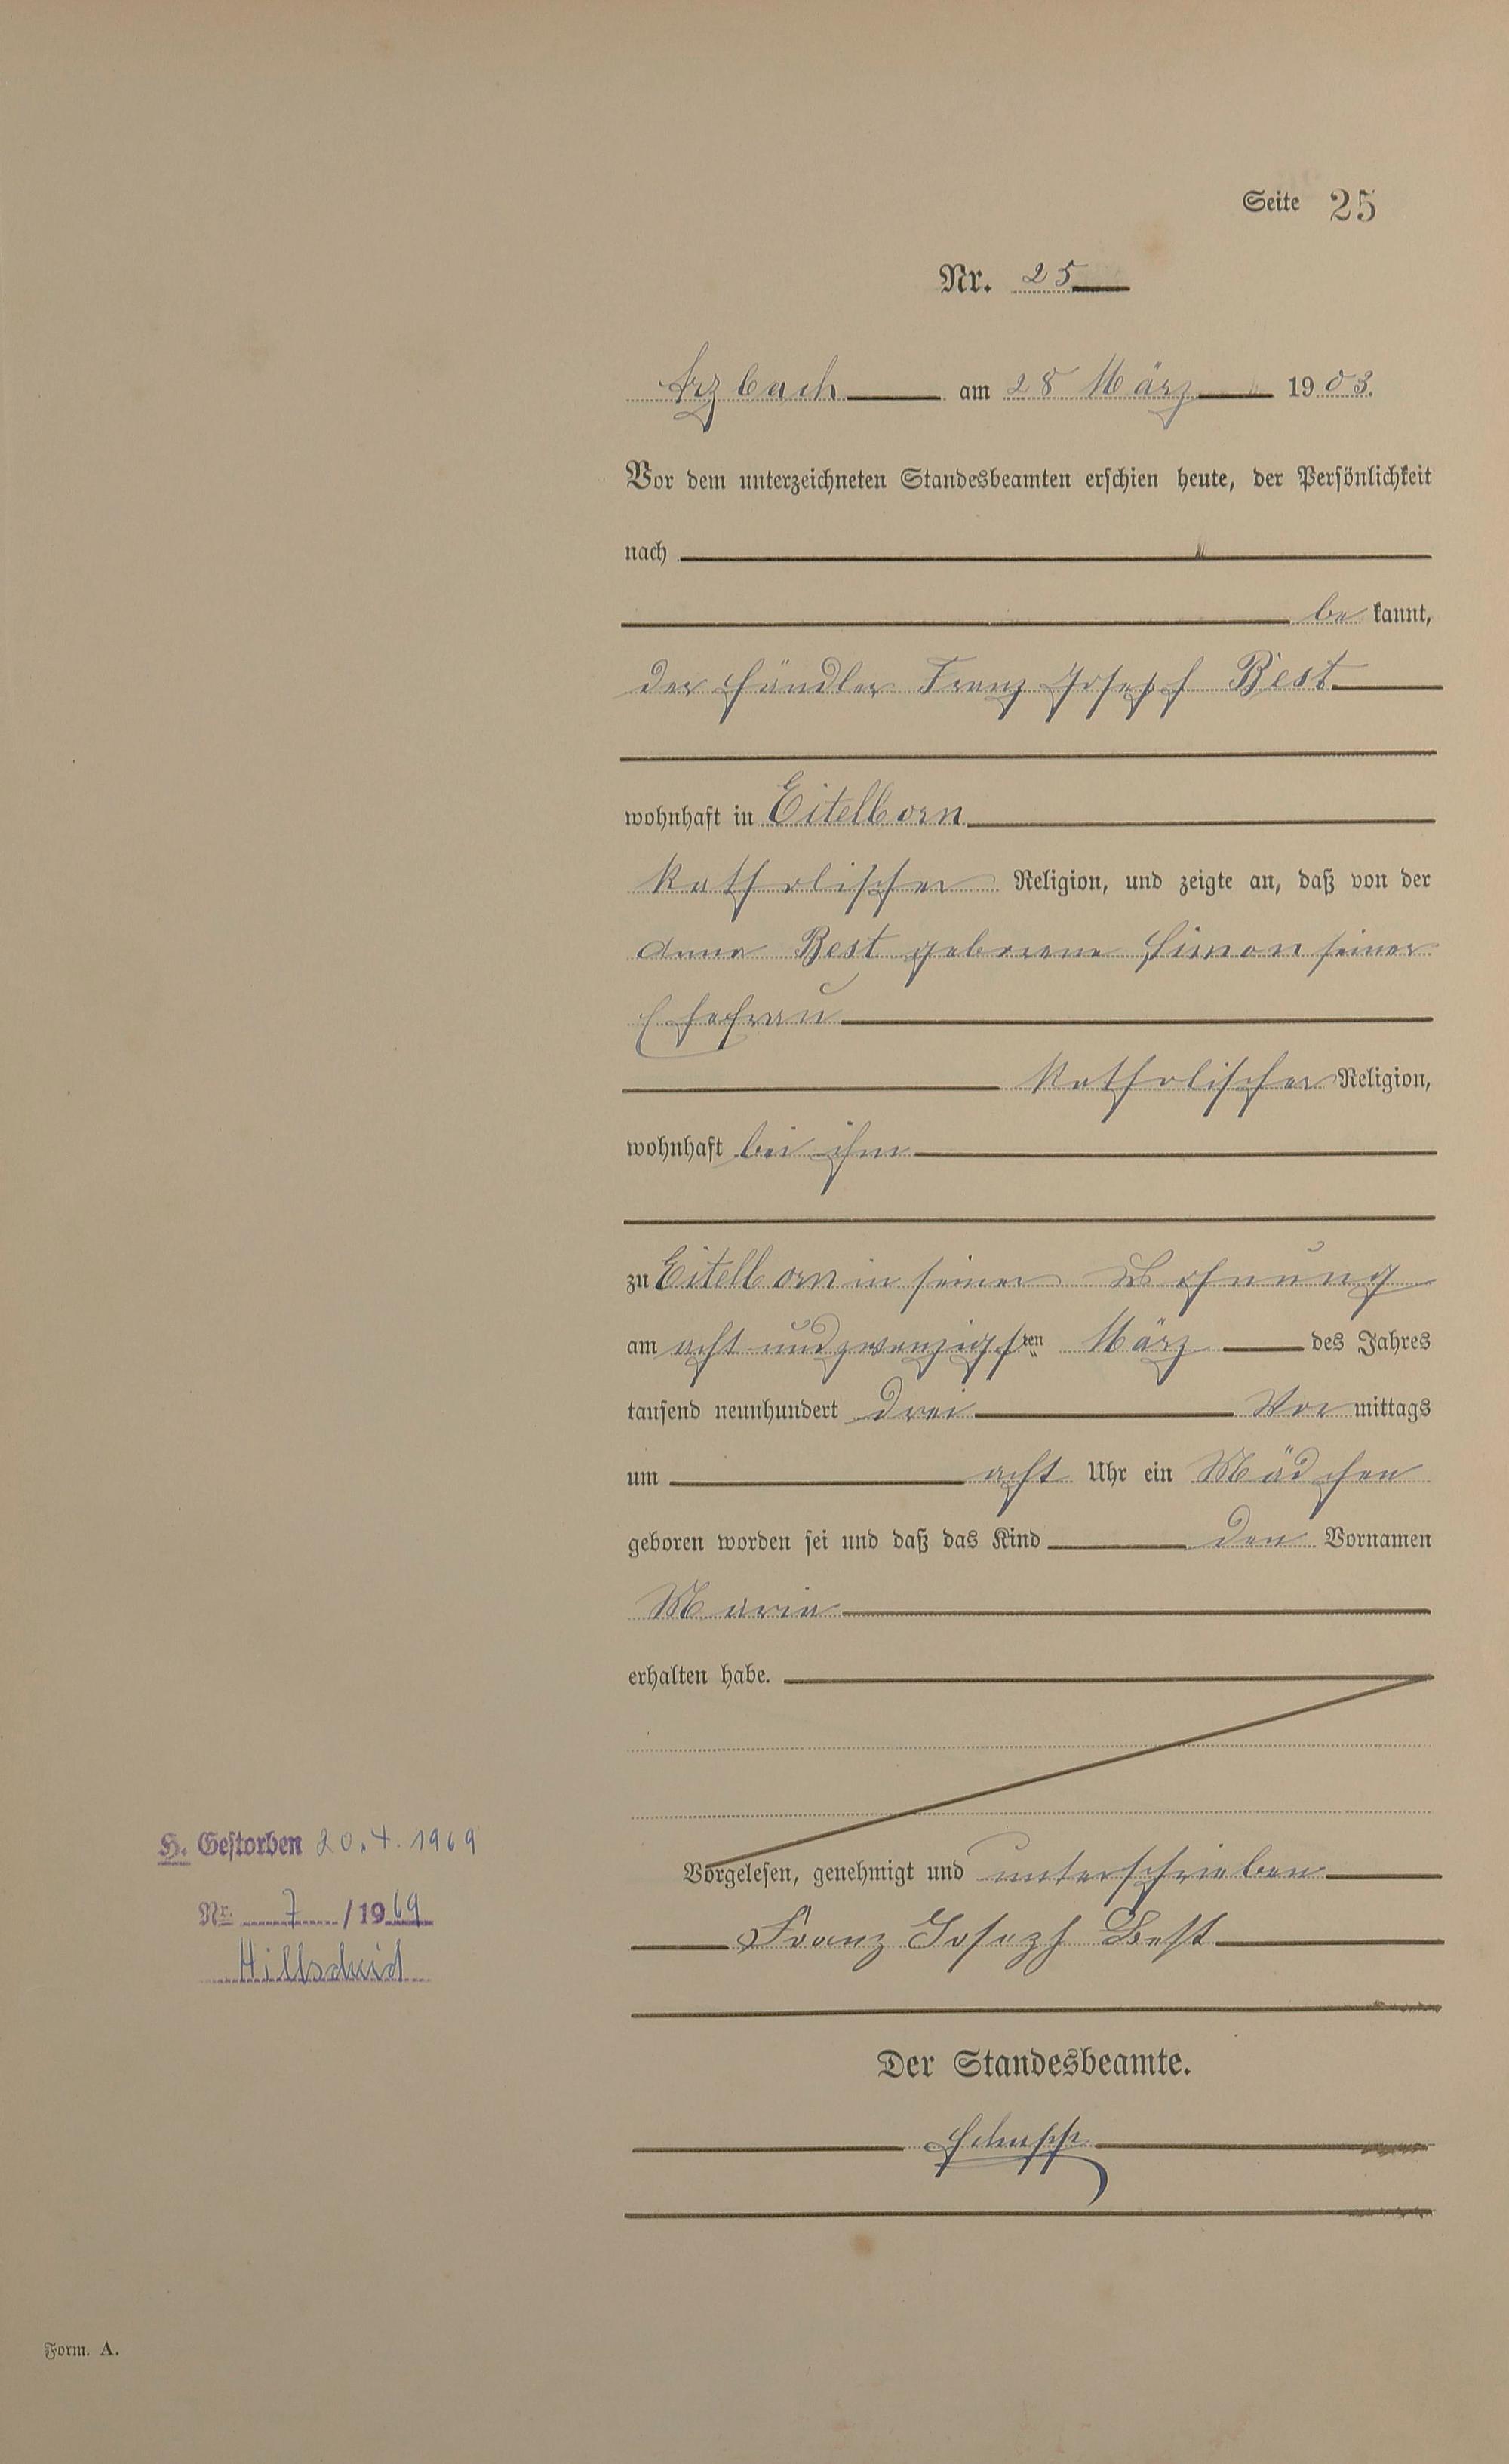 Seite 25
Nr. 25
Arzbach am 28 März 1903.
Vor dem unterzeichneten Standesbeamten erschien heute, der Persönlichkeit
nach
be kannt,
der Händler Franz Joseph Best
wohnhaft in Eitelborn
katholischer Religion, und zeigte an, daß von der
Anna Best geborene Simon seiner
Ehefrau
katholischer Religion,
wohnhaft bei ihm
zu Eitelborn in seiner Wohnung
am acht und zwanzigsten März des Jahres
tausend neunhundert drei Vor mittags
um acht Uhr ein Mädchen
geboren worden sei und daß das Kind den Vornamen
Maria
erhalten habe.
Vorgelesen, genehmigt und unterschrieben
Franz Joseph Best
Der Standesbeamte.
Schupp
H. Gestorben 20.4.1969
Nr. 7 /1969
Hillscheid
Form. A.